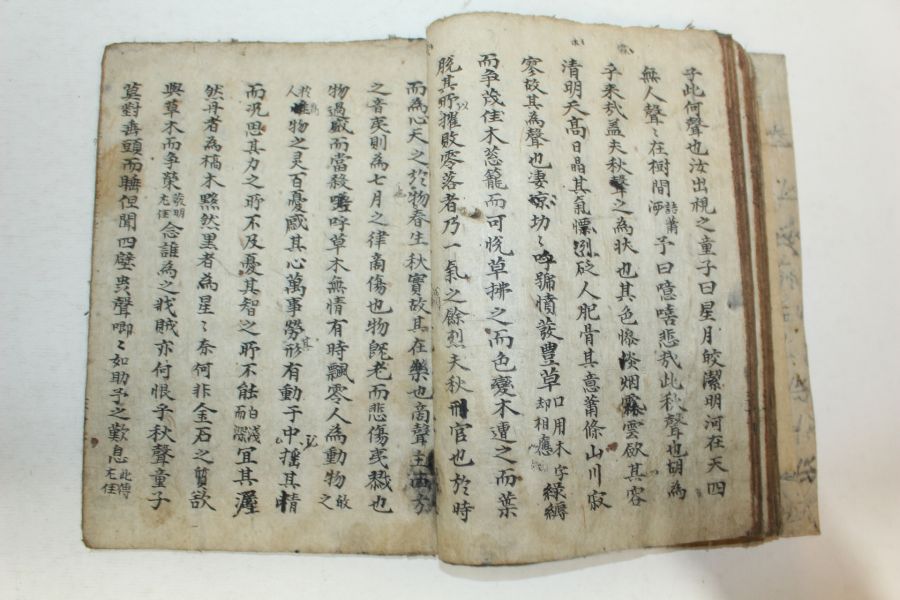 子此何聲也汝出視之童子曰星月皎潔明河在天四
無人聲〻在樹間 予曰噫嘻悲哉此秋聲也胡為
乎來哉蓋夫秋聲之為狀也其色慘淡烟霏雲歛其容
清明天高日晶其氣慄冽砭人肥骨其意蕭條山川寂
寥故其為聲也凄凉切〻呼號憤發豐草口用木字却相應綠縟
而爭茂佳木葱籠而可悅草拂之而色變木遭之而葉
脫其所以摧敗零落者乃一氣之餘烈夫秋刑官也於時
而為心天之於物春生秋實故其在樂也商聲主西方
之音夷則為七月之律商傷也物旣老而悲傷夷戮也
物過盛而當殺嗟呼草木無情有時飄零人為動物
惟物之灵百憂感其心萬事勞其形有動于中搖其精
而况思其力之所不及憂其智之所不能宜其渥
然丹者為槁木黟然黑者為星〻奈何非金石之質欲
與草木而爭榮 念誰為之戕賊亦何恨乎秋聲童子
莫對垂頭而睡但聞四壁虫聲唧〻如助予之歎息